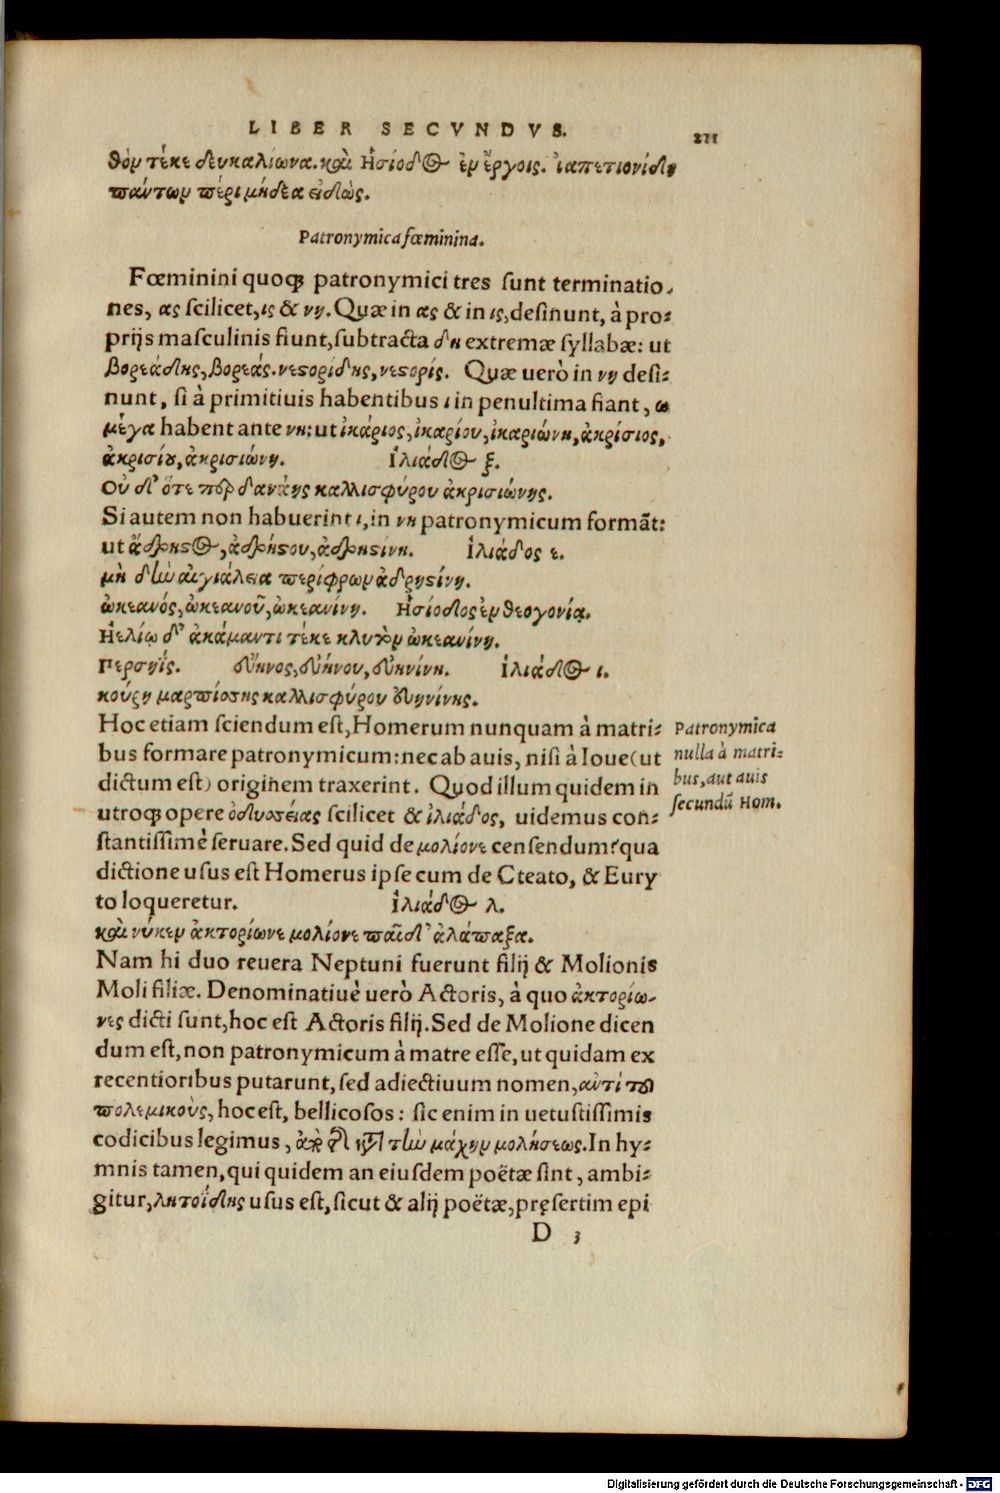 LIBER SECVNDVS.
271
θὸν τέκε δευκαλίωνα. καὶ Ἡσίοδος ἐν ἔργοις. ἰαπετιονίδη
πάντων πέρι μήδεα εἰδὼς.
Patronymica fœminina.
Fœminini quoq; patronymici tres sunt terminatio-
nes, ας scilicet, ις & νη. Quæ in ας & in ις, desinunt, à pro-
prijs masculinis fiunt, subtracta δη extremæ syllabæ: ut
βορεάδης, βορεάς. νεστορίδης, νεστορίς. Quæ uerò in νη desi-
nunt, si à primitiuis habentibus ι in penultima fiant, ω
μέγα habent ante νη: ut ἰκάριος, ἰκαρίου, ἰκαριώνη, ἀκρίσιος,
ἀκρισίου, ἀκρισιώνη. Ἰλιάδος ξ.
Οὐ δ' ὅτε περ δανάης καλλισφύρου ἀκρισιώνης.
Si autem non habuerint ι, in νη patronymicum formãt:
ut ἄδρηστος, ἀδρήστου, ἀδρηστίνη. Ἰλιάδος ε.
μὴ δὴν αἰγιάλεια περίφρων ἀδρηστίνη.
ὠκεανός, ὠκεανοῦ, ὠκεανίνη. Ἡσίοδος ἐν θεογονίᾳ.
Ἠελίῳ δ' ἀκάμαντι τέκε κλυτὸν ὠκεανίνη.
Περσηΐς. εὔηνος, εὐήνου, εὐηνίνη. Ἰλιάδος ι.
κούρη μαρπίσσης καλλισφύρου εὐηνίνης.
Hoc etiam sciendum est, Homerum nunquam à matri-
bus formare patronymicum: nec ab auis, nisi à Ioue (ut
dictum est) originem traxerint. Quod illum quidem in
utroq; opere ὀδυσσείας scilicet & ἰλιάδος, uidemus con-
stantissimè seruare. Sed quid de μολίονε censendum? qua
dictione usus est Homerus ipse cum de Cteato, & Eury
to loqueretur. Ἰλιάδος λ.
καὶ νύ κεν ἀκτορίωνε μολίονε παῖδ' ἀλάπαξα.
Nam hi duo reuera Neptuni fuerunt filij & Molionis
Moli filiæ. Denominatiuè uerò Actoris, à quo ἀκτορίω-
νες dicti sunt, hoc est Actoris filij. Sed de Molione dicen
dum est, non patronymicum à matre esse, ut quidam ex
recentioribus putarunt, sed adiectiuum nomen, αντὶ τοῦ
πολεμικοὺς, hoc est, bellicosos: sic enim in uetustissimis
codicibus legimus, τὴν μάχην μολήσεως. In hy-
mnis tamen, qui quidem an eiusdem poëtæ sint, ambi-
gitur, λητοΐδης usus est, sicut & alij poëtæ, pręsertim epi
D 3
Patronymica
nulla à matri-
bus, aut auis
secundũ Hom.
Digitalisierung gefördert durch die Deutsche Forschungsgemeinschaft - DFG